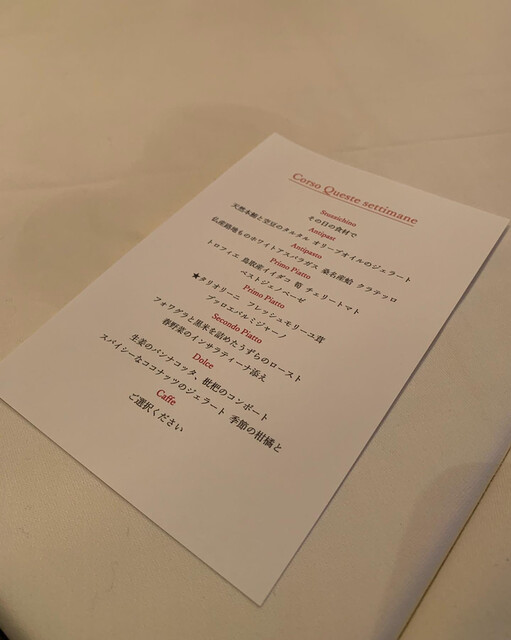 Corso Queste settimane
Stuzzichino
その日の食材で
Antipast
天然本鮪と空豆のタルタル オリーブオイルのジェラート
Antipasto
仏産路地ものホワイトアスパラガス 桑名産蛤 クラテッロ
Primo Piatto
トロフィエ 鳥取産イイダコ 筍 チェリートマト
ペストジェノベーゼ
Primo Piatto
★タリオリーニ フレッシュモリーユ茸
ブッロエパルミジャーノ
Secondo Piatto
フォワグラと黒米を詰めたうずらのロースト
春野菜のインサラティーナ添え
Dolce
生姜のパンナコッタ、枇杷のコンポート
スパイシーなココナッツのジェラート 季節の柑橘と
Caffe
ご選択ください